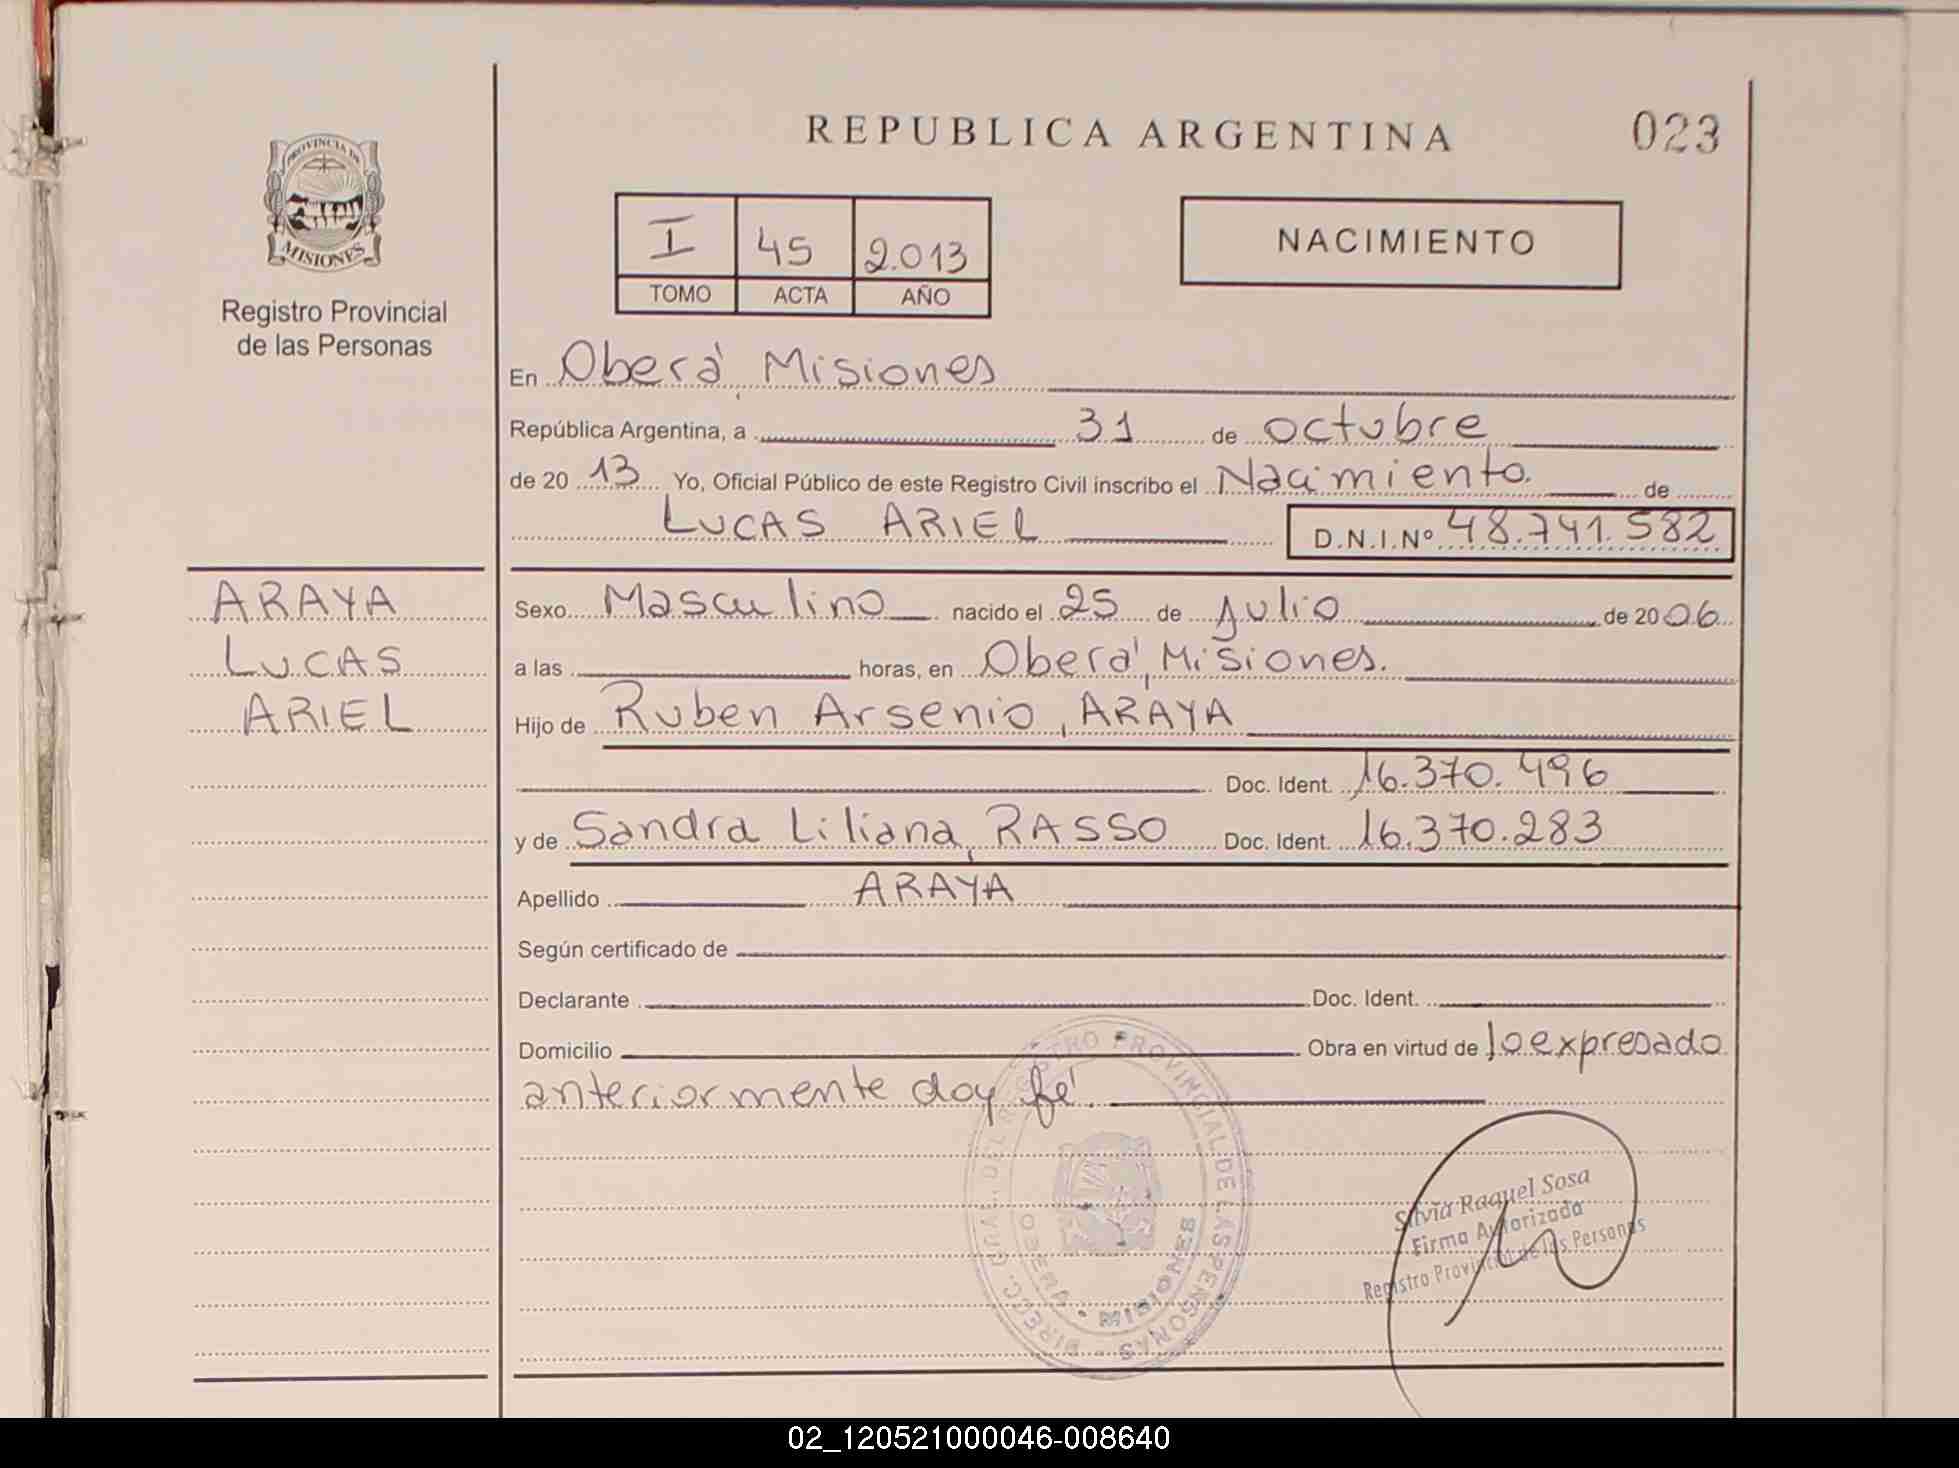 REPUBLICA ARGENTINA
023
PROVINCIA DE
MISIONES
Registro Provincial
de las Personas
I 45 2.013
TOMO ACTA AÑO
NACIMIENTO
En Oberá, Misiones
República Argentina, a 31 de octubre
de 20 13 Yo, Oficial Público de este Registro Civil inscribo el Nacimiento. de
LUCAS ARIEL D.N.I.Nº 48.741.582
ARAYA
LUCAS
ARIEL
Sexo Masculino nacido el 25 de julio de 2006
a las horas, en Oberá, Misiones.
Hijo de Ruben Arsenio, ARAYA
Doc. Ident. 16.370.496
y de Sandra Liliana, RASSO Doc. Ident. 16.370.283
Apellido ARAYA
Según certificado de
Declarante Doc. Ident.
Domicilio Obra en virtud de lo expresado
anteriormente doy fé.
DIRECC. GRAL. DEL REGISTRO PROVINCIAL DE LAS PERSONAS
OBERA • MISIONES
Silvia Raquel Sosa
Firma Autorizada
Registro Provincial de las Personas
02_120521000046-008640